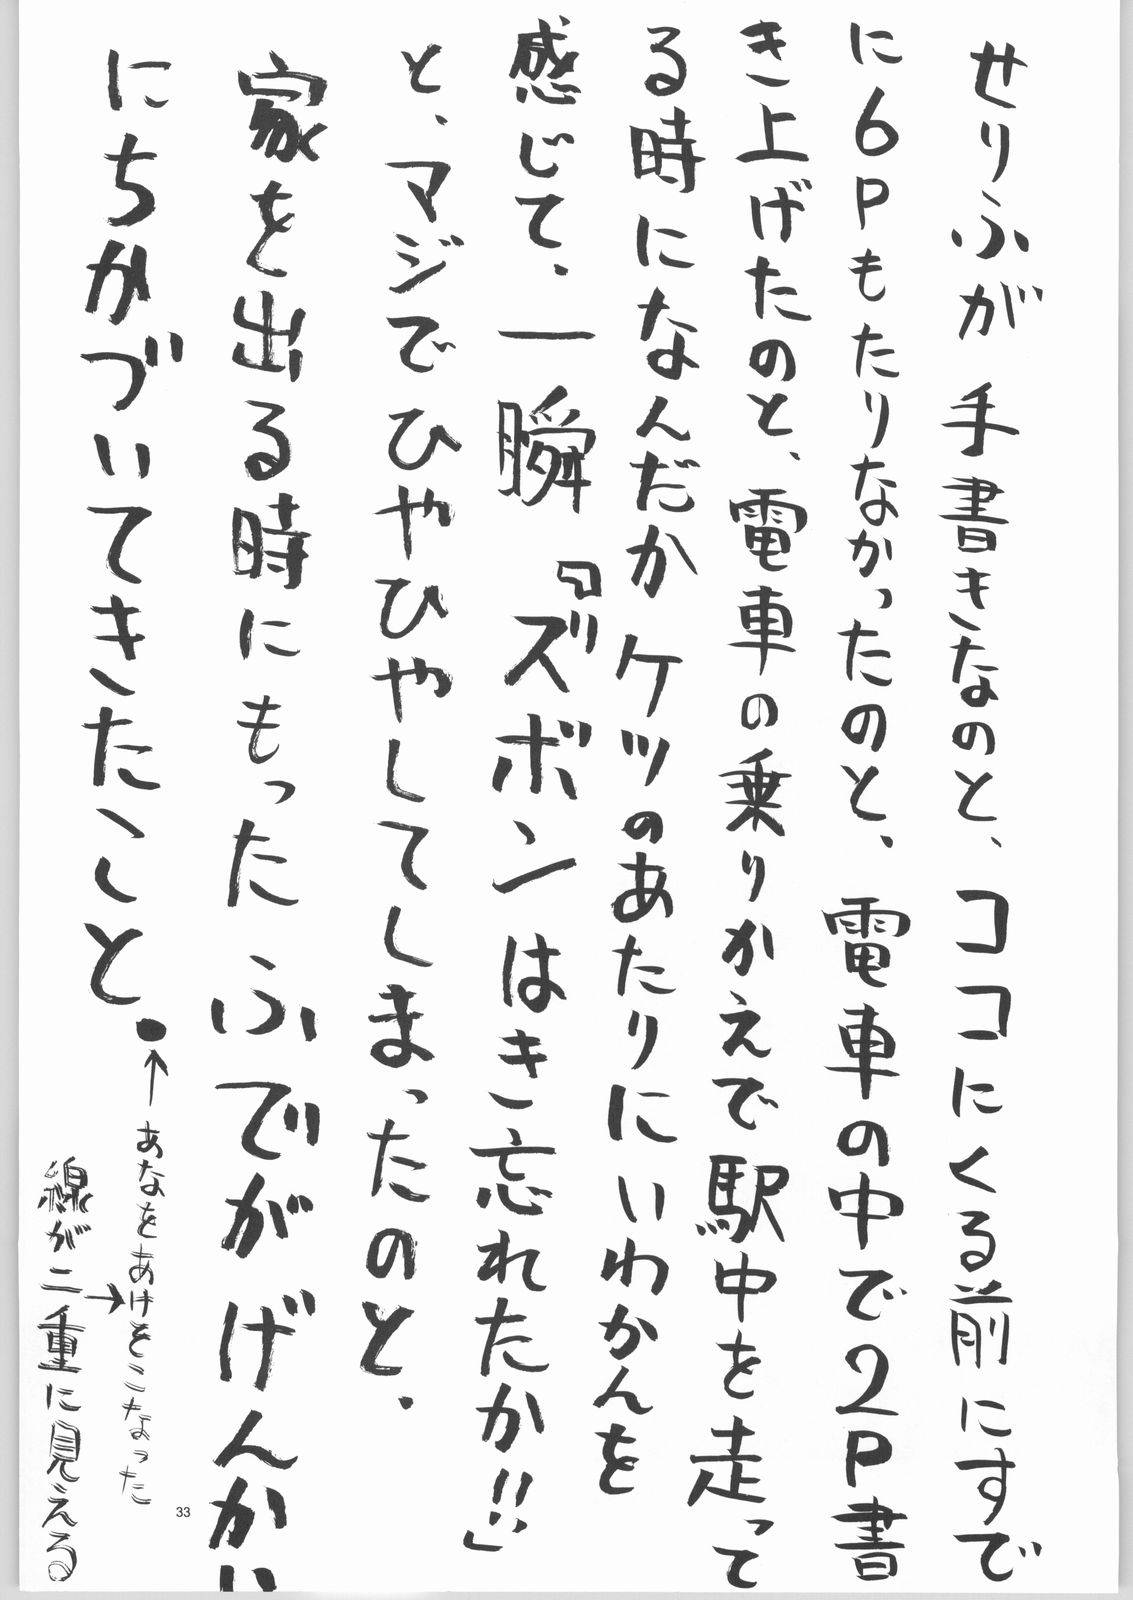 せりふが手書きなのと、ココにくる前にすで
に6Pもたりなかったのと、電車の中で2P書
き上げたのと、電車の乗りかえで駅中を走って
る時になんだかケツのあたりにいわかんを
感じて、一瞬『ズボンはき忘れたか!!』
と、マジでひやひやしてしまったのと、
家を出る時にもったふでがげんかい
にちかづいてきたこと。
↑あなをあけそこなった
線が二重に見える→
33